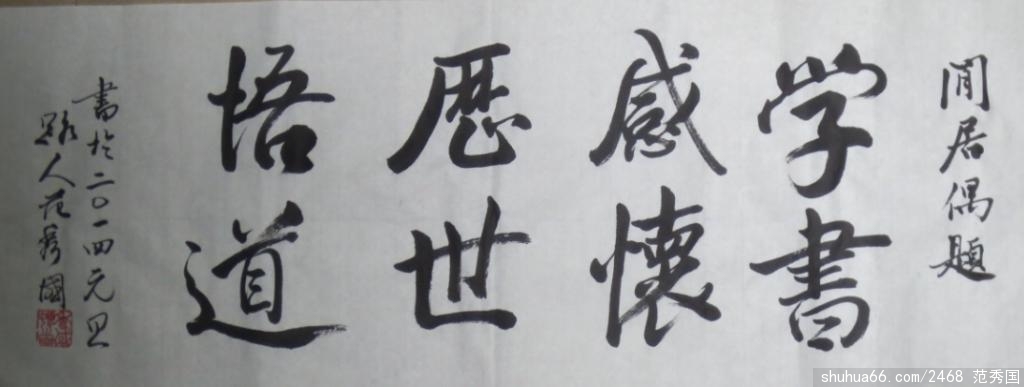 閒居偶題
学書
感懷
歷世
悟道
書於二〇一四元旦
范秀國
shuhua66.com/2468 范秀国